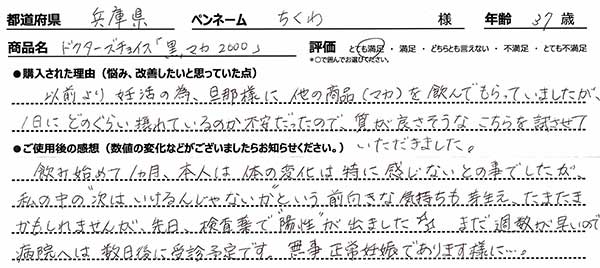 都道府県 兵庫県 ペンネーム ちくわ 様 年齢 37歳
商品名 ドクターズチョイス「黒マカ2000」 評価 とても満足・満足・どちらとも言えない・不満足・とても不満足
*○で囲んでお選びください。
●購入された理由(悩み、改善したいと思っていた点)
以前より妊活の為、旦那様に他の商品(マカ)を飲んでもらっていましたが、
1日にどのぐらい摂れているのか不安だったので、質が良さそうなこちらを試させて
いただきました。
●ご使用後の感想(数値の変化などがございましたらお知らせください。)
飲み始めて1カ月、本人は体の変化は特に感じないとの事でしたが、
私の中の"次はいけるんじゃないか"という前向きな気持ちも芽生え、たまたま
かもしれませんが、先日、検査薬で"陽性"が出ました まだ週数が早いので
病院へは数日後に受診予定です。無事正常妊娠であります様に…。